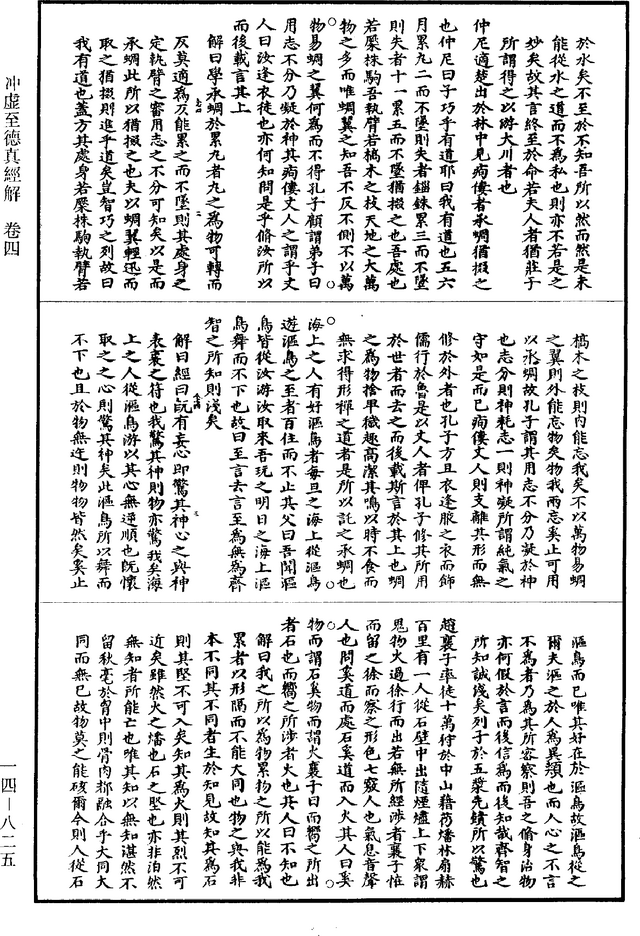 冲虛至德真經解　卷四
於水矣不至於不知吾所以然而然是未
能從水之道而不為私也則亦不若是之
妙矣故其言終至於命若夫人者猶莊子
所謂得之以游大川者也
仲尼適楚出於林中見痀僂者承蜩猶掇之
也仲尼曰子巧乎有道耶曰我有道也五六
月累九二而不墜則失者錙銖累三而不墜
則失者十一累五而不墜猶掇之也吾處也
若橜株駒吾執臂若槁木之枝天地之大萬
物之多而唯蜩翼之知吾不反不側不以萬
物易蜩之翼何為而不得孔子顧謂弟子曰
用志不分乃凝於神其痀僂丈人之謂乎丈
人曰汝逢衣徒也亦何知問是乎脩汝所以
而後載言其上
解曰學承蜩於累九者九之為物可轉而
反莫適為方能累之而不墜則其處身之
定執臂之審用志之不分可知矣以是而
承蜩此所以猶掇之也夫以蜩翼輕迅而
取之猶掇則進乎道矣豈智巧之列故曰
我有道也蓋方其處身若橜株駒執臂若
槁木之枝則內能忘我矣不以萬物易蜩
之翼則外能忘物矣物我兩忘矣止可用
以承蜩故孔子謂其用志不分乃凝於神
也志分則神耗志一則神凝所謂純氣之
守如是而已痀僂丈人則支離其形而無
修於外者也孔子方且衣逢服之衣而飾
儒行於魯是以丈人者俾孔子修其所用
於世者而去之而後載斯言於其上也蜩
之為物捨卑穢趣高潔其鳴以時不食而
無求得形禪之道者是所以託之承蜩也
海上之人有好漚鳥者每旦之海上從漚鳥
遊漚鳥之至者百住而不止其父曰吾聞漚
鳥皆從汝游汝取來吾玩之明日之海上漚
鳥舞而不下也故曰至言去言至為無為齊
智之所知則淺矣
解曰經曰既有妄心即驚其神心之與神
表裏之符也我驚其神則物亦驚我矣海
上之人從漚鳥游以其心無逆順也既懷
取之之心則驚其神矣此漚鳥所以舞而
不下也且於物無迕則物物皆然矣奚止
漚鳥而已唯其好在於漚鳥故漚鳥從之
爾夫漚之於人為異類也而人心之不言
不為者乃為其所容察則吾之脩身治物
亦何假於言而後信為而後知哉齊智之
所知誠淺矣列子於五漿先饋所以驚也
趙襄子率徒十萬狩於中山藉芿燔林扇赫
百里有一人從石壁中出隨煙燼上下衆謂
鬼物火過徐行而出若無所經涉者襄子怪
而留之徐而察之形色七竅人也氣息音聲
人也問奚道而處石奚道而入火其人曰奚
物而謂石奚物而謂火襄子曰而嚮之所出
者石也而嚮之所涉者火也其人曰不知也
解曰我之所以為物累物之所以能為我
累者以形隔而不能大同也物之與我非
本不同其不同者生於知見故知其為石
則其堅不可入矣知其為火則其烈不可
近矣雖然火之燔也石之堅也亦非泊然
無知者所能亡也唯其知以無知湛然不
留秋毫於胷中則骨肉都融合乎大同大
同而無已故物莫之能硋爾今則人從石
一四—八二五